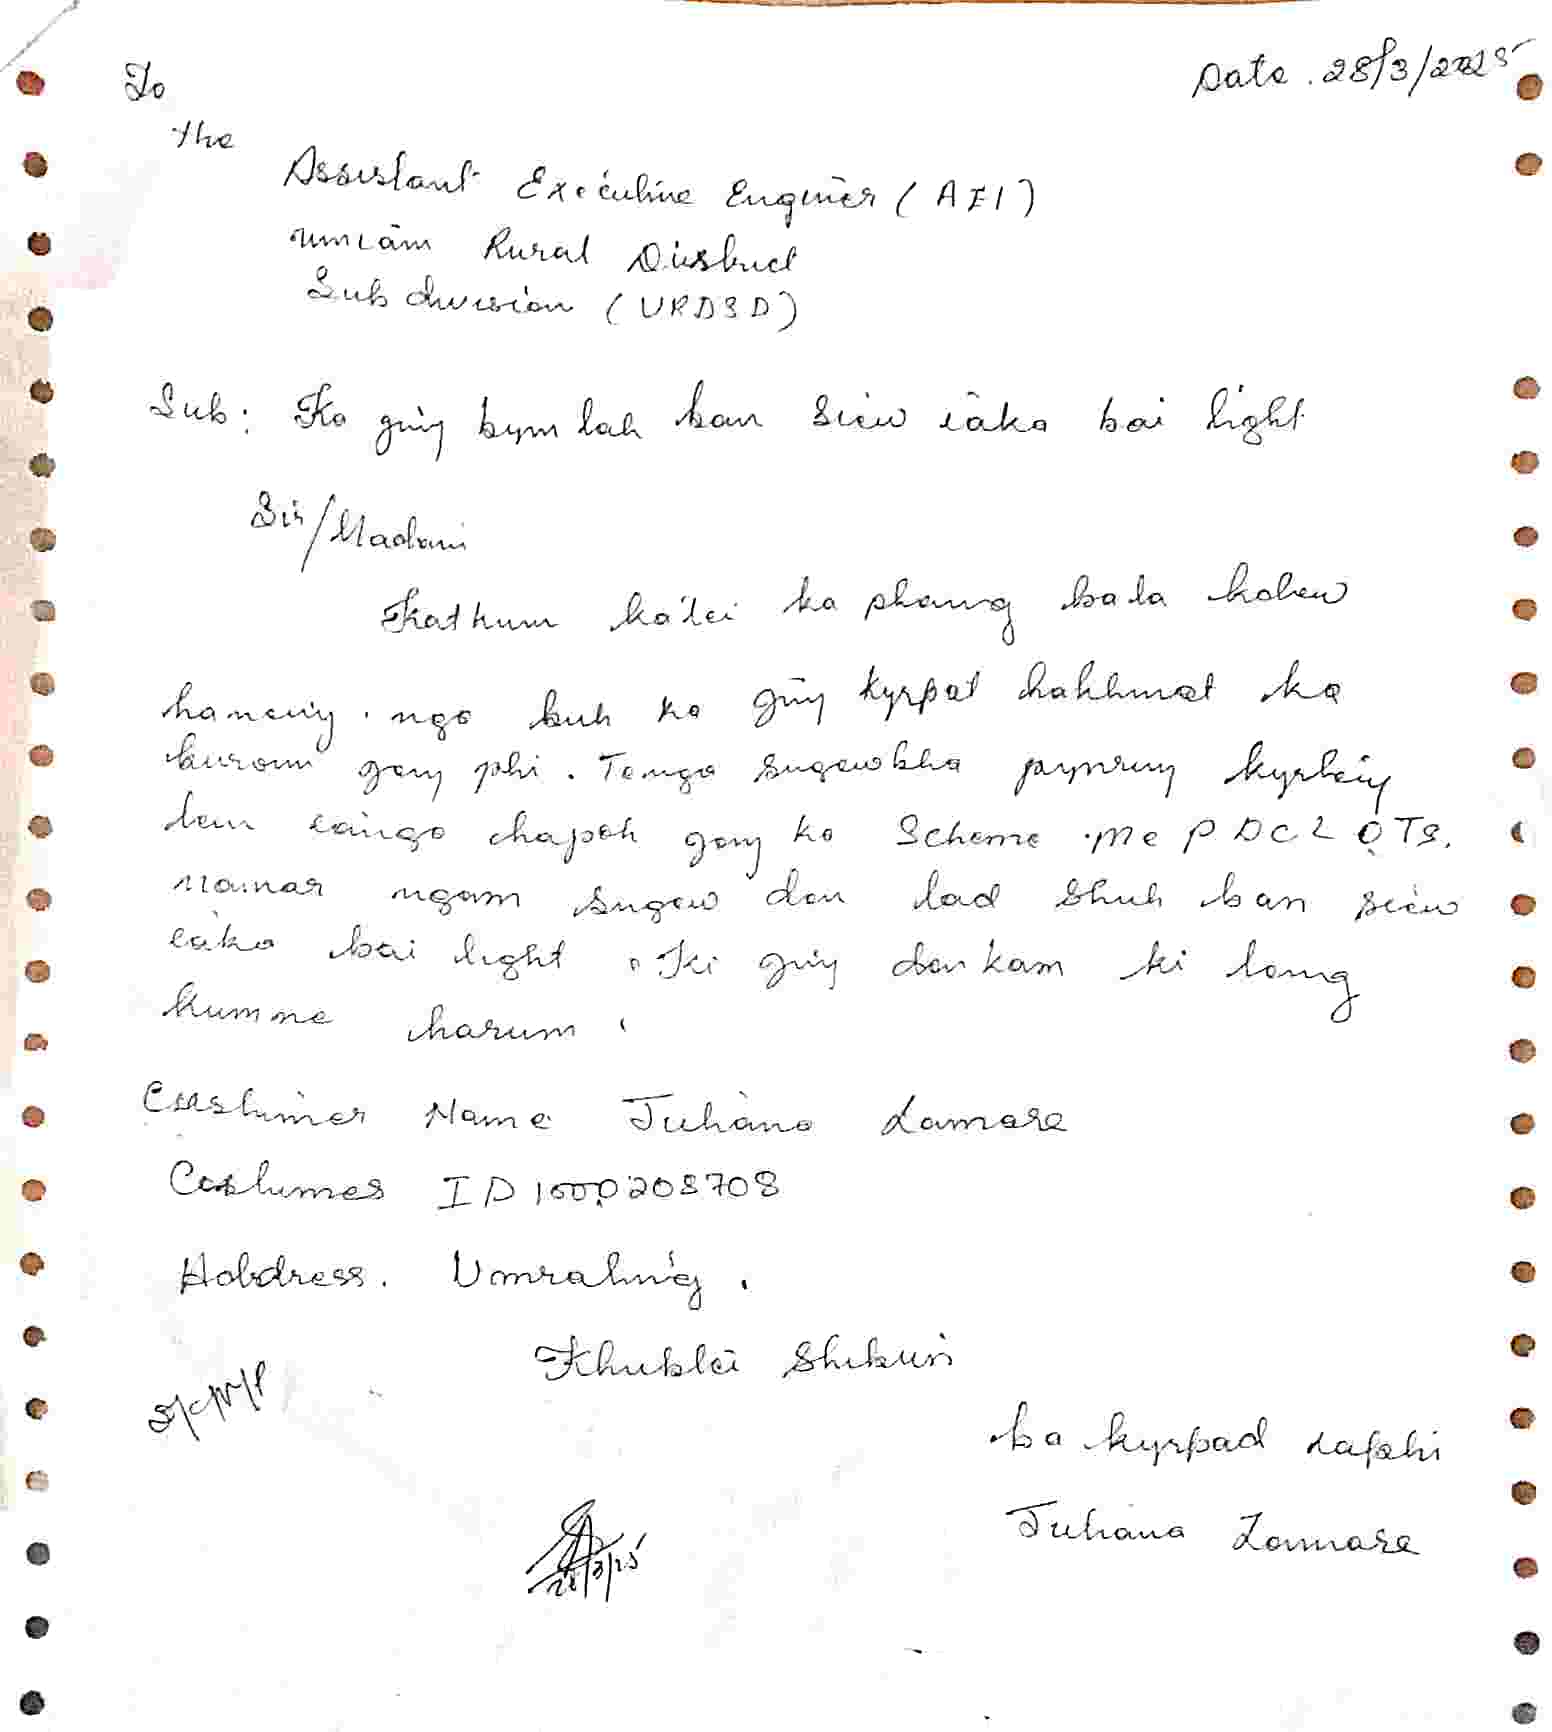 Date. 28/3/2025
To
the
Assistant Executine Enginer (AEI)
umiam Rural District
Sub division (URDSD)
Sub: Ka jing bym lah ban siew ïaka bai light
Sir/Madam
Katkum ka'lei ka phang bala kolew
haneng. nga buh ka jing kyrpat hakhmat ka
burom jong phi. To nga sngewbha pynrung kyrteng
lem ïainga hapoh jong ka Scheme MePDCL OTS.
Namar ngam sngew don lad shuh ban siew
ïaka bai light. Ki jing donkam ki long
kumne harum.
Custumer Name Juliana Lamare
Costumer ID 1000208708
Adddress. Umraling.
Khublei Shibun
ba kyrpad naphi
Juliana Lamare
28/3/25